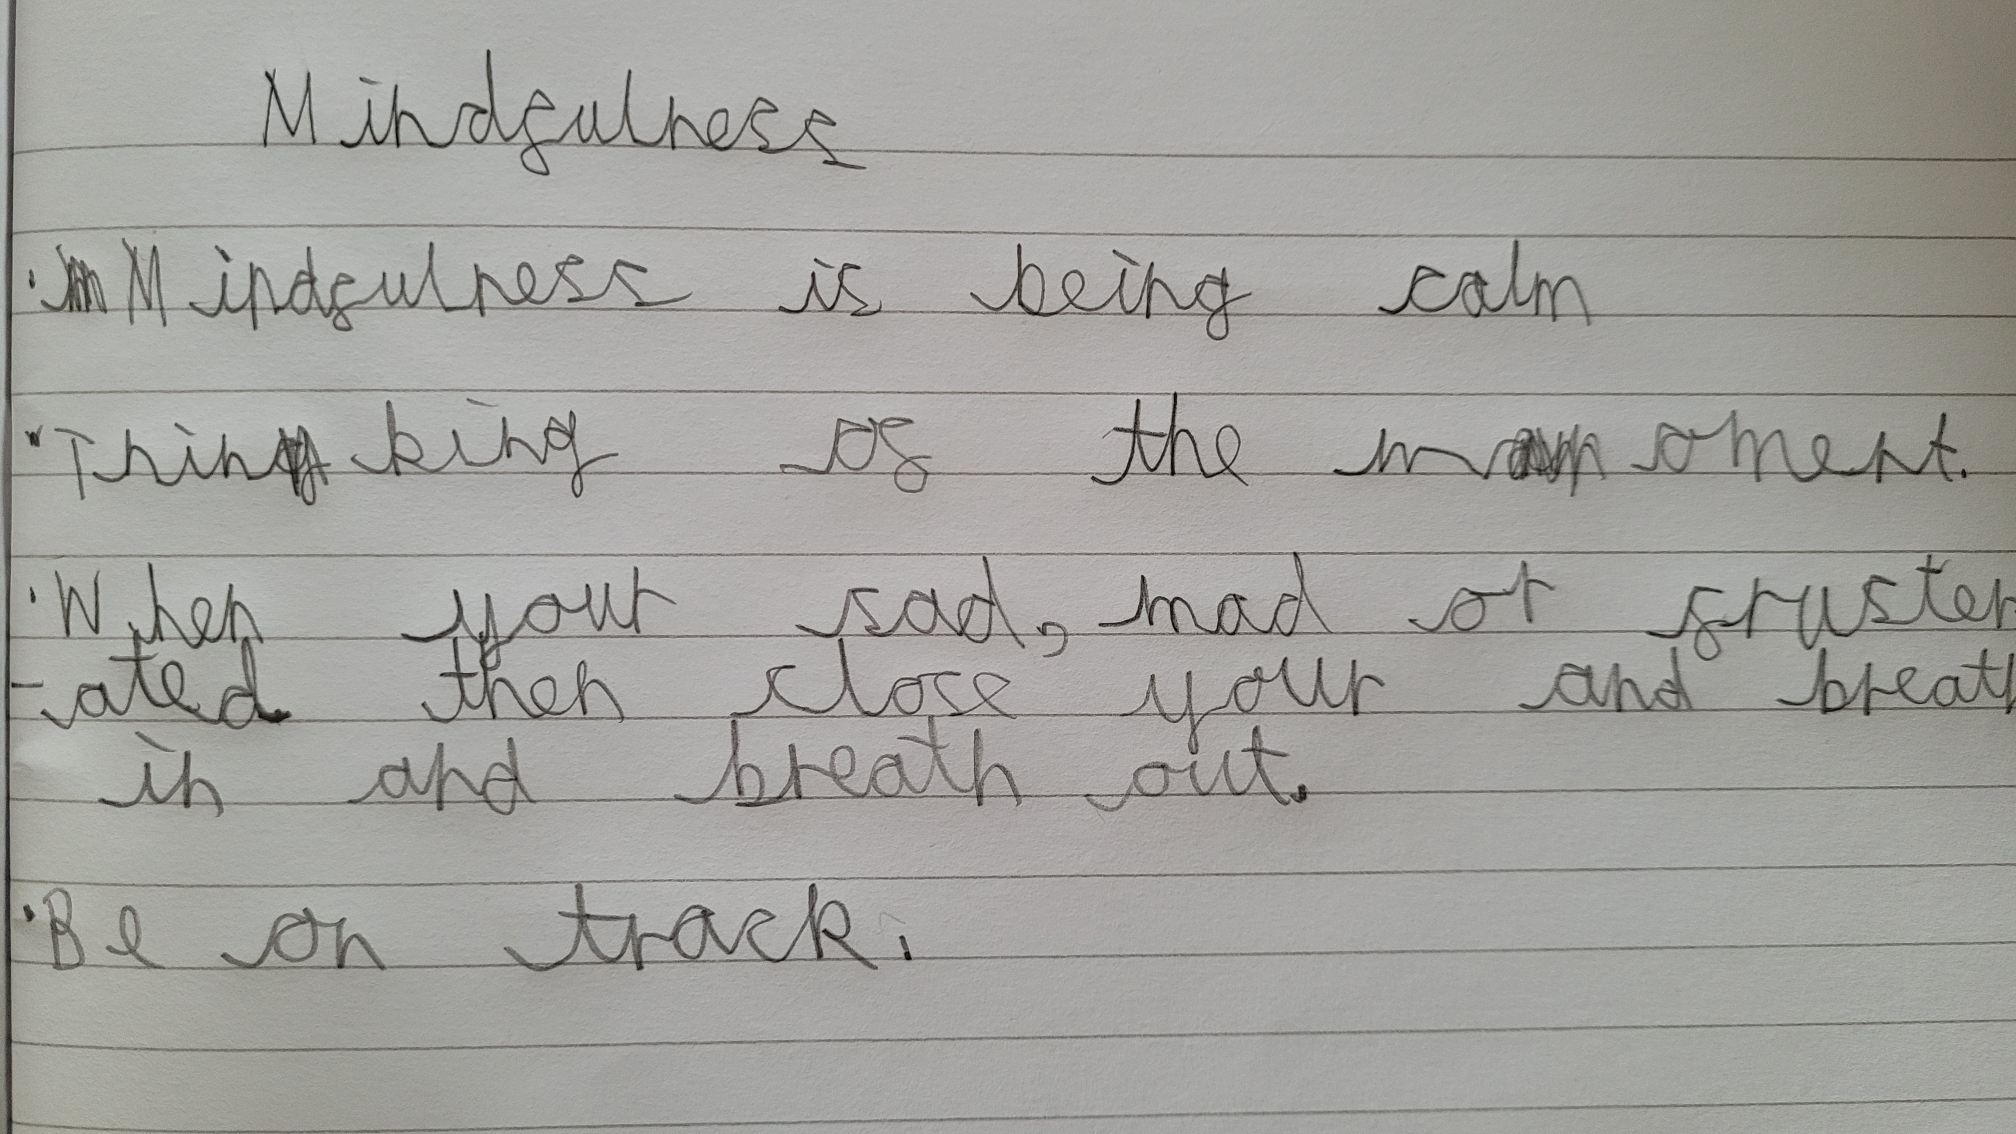 Mindfulness
· Mindfulness is being calm
· Thinking of the moment.
· When your sad, mad or fruster
-ated then close your and breath
in and breath out.
· Be on track.